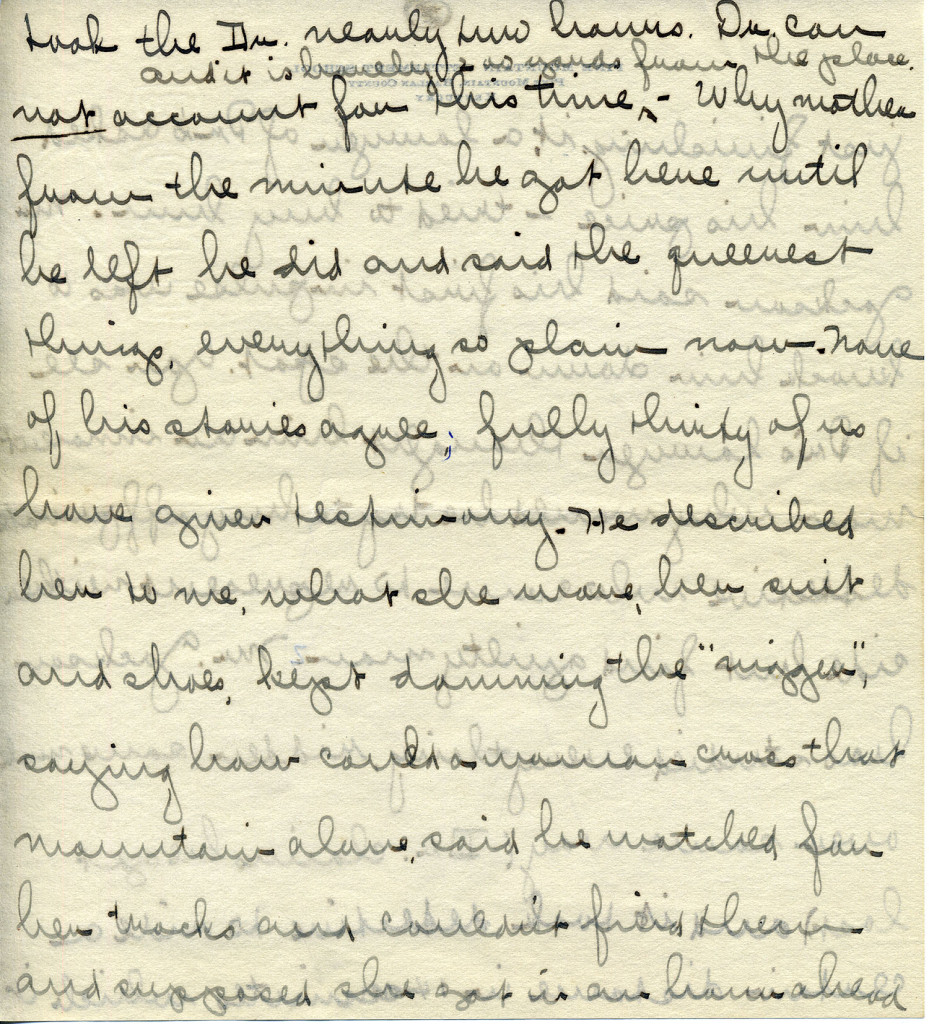 took the Dr. nearly two hours. Dr. can
and it is barely 200 yards from the place.
not account for this time, - Why mother
from the minute he got here until
he left he did and said the queerest
things, everything so plain now. None
of, his stories agree, fully thirty of us
have given testimony. He described
her to me, what she wore, her suit
and shoes, kept damning the "nigger",
saying how could a woman cross that
mountain alone, said he watched for
her tracks and couldn't find them
and supposed she got in an hour ahead